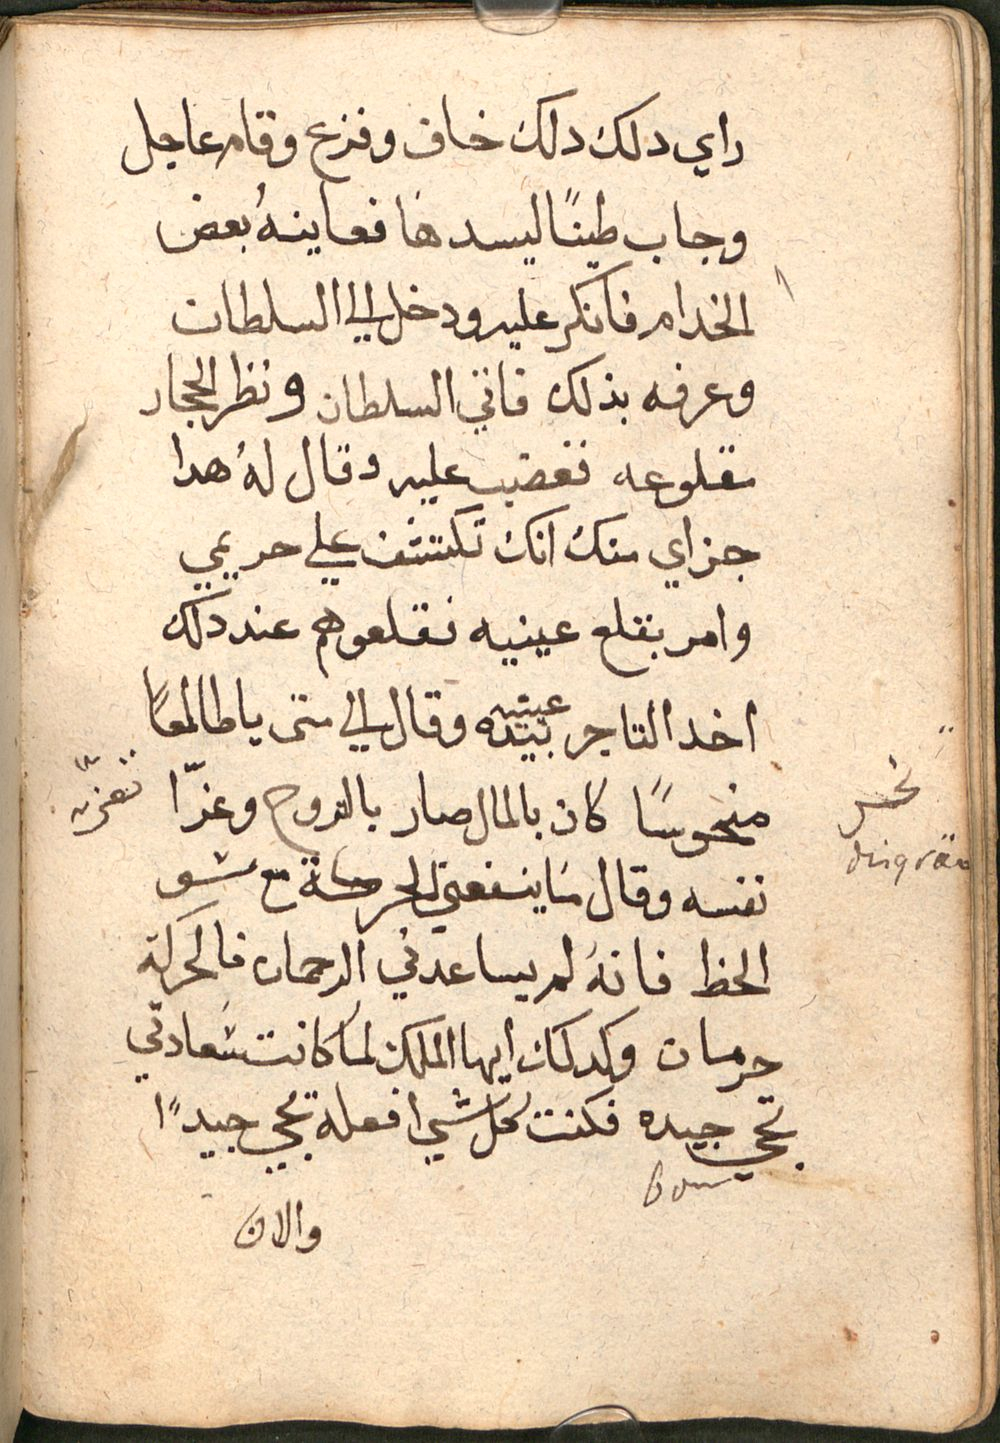 راي دلك دلك خاف وفزع وقام عاجل
وجاب طينًا ليسدها فعاينهُ بعض
الخدام فانكر عليه ودخل الي السلطان
وعرفه بذلك فاتي السلطان ونظر الحجار
مقلوعه فغضب عليه وقال لهُ هدا
جزاي منك انك تكشف علي حريمي
وامر بقلع عينيه فقلعوهم عند دلك
اخد التاجر عينيه بيده وقال الي متى يا طالعًا
منحوسًا كان بالمال صار بالروح وعزّا
نفسه وقال ما ينفعني الحركة مع
الحظ فانهُ لم يساعدني الرحمان فالحركة
حرمان وكدلك ايها الملك لما كانت سعادتي
تجي جيده فكنت كل شي افعله تجي جيدًا
والان
تعزيه
نحس
bon